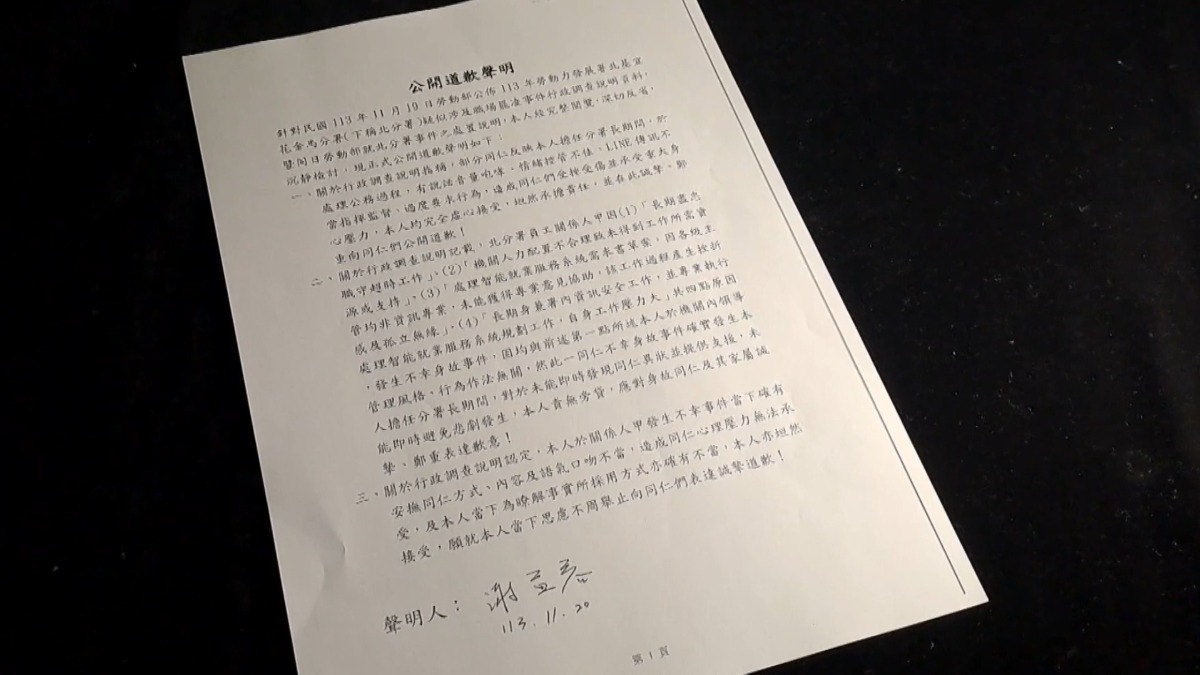 公開道歉聲明
針對民國 113 年 11 月 19 日勞動部公佈 113 年勞動力發展署北基宜
花金馬分署(下稱北分署)疑似涉及職場霸凌事件行政調查說明資料，
暨同日勞動部就北分署事件之處置說明，本人經完整閱覽，深切反省，
沉靜檢討，現正式公開道歉聲明如下：
一、關於行政調查說明指稱，部分同仁反映本人擔任分署長期間，於
處理公務過程，有說話音量咆哮、情緒控管不佳、LINE 傳訊不
當指揮監督、過度要求行為，造成同仁們受挫受傷並承受重大身
心壓力，本人均完全虛心接受，坦然承擔責任，並在此誠摯、鄭
重向同仁們公開道歉！
二、關於行政調查說明記載，北分署員工關係人甲因(1)「長期盡忠
職守超時工作」、(2)「機關人力配置不合理致未得到工作所需資
源或支持」、(3)「處理智能就業服務系統需求書草案，因各級主
管均非資訊專業，未能獲得專業意見協助，該工作過程產生挫折
感及孤立無緣」、(4)「長期身兼署內資訊安全工作，並專業執行
處理智能就業服務系統規劃工作，自身工作壓力大」共四點原因
，發生不幸身故事件，固均與前述第一點所述本人於機關內領導
管理風格、行為作法無關，然此一同仁不幸身故事件確實發生本
人擔任分署長期間，對於未能即時發現同仁異狀並提供支援，未
能即時避免悲劇發生，本人責無旁貸，應對身故同仁及其家屬誠
摯、鄭重表達歉意！
三、關於行政調查說明認定，本人於關係人甲發生不幸事件當下確有
安撫同仁方式、內容及語氣口吻不當，造成同仁心理壓力無法承
受，及本人當下為瞭解事實所採用方式亦確有不當，本人亦坦然
接受，願就本人當下思慮不周舉止向同仁們表達誠摯道歉！
聲明人：謝宜容
113.11.20
第 1 頁